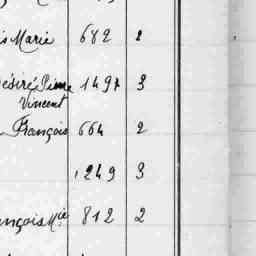 is Marie 682 2
Désiré Pierre 1497 3
Vincent
François 664 2
1249 3
ançois Mie 812 2